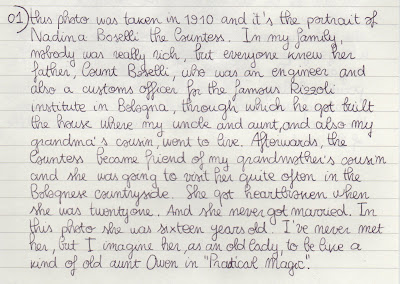 01) this photo was taken in 1910 and it's the portrait of
Nadina Boselli the Countess. In my family,
nobody was really rich, but everyone knew her
father, Count Boselli, who was an engineer and
also a customs officer for the famous Rizzoli
institute in Bologna, through which he got built
the house where my uncle and aunt, and also my
grandma's cousin, went to live. Afterwards, the
Countess became friend of my grandmother's cousin
and she was going to visit her quite often in the
Bolognese countryside. She got heartbroken when
she was twentyone. And she never got married. In
this photo she was sixteen years old. I've never met
her, but I imagine her, as an old lady, to be like a
kind of old aunt Owen in "Practical Magic".